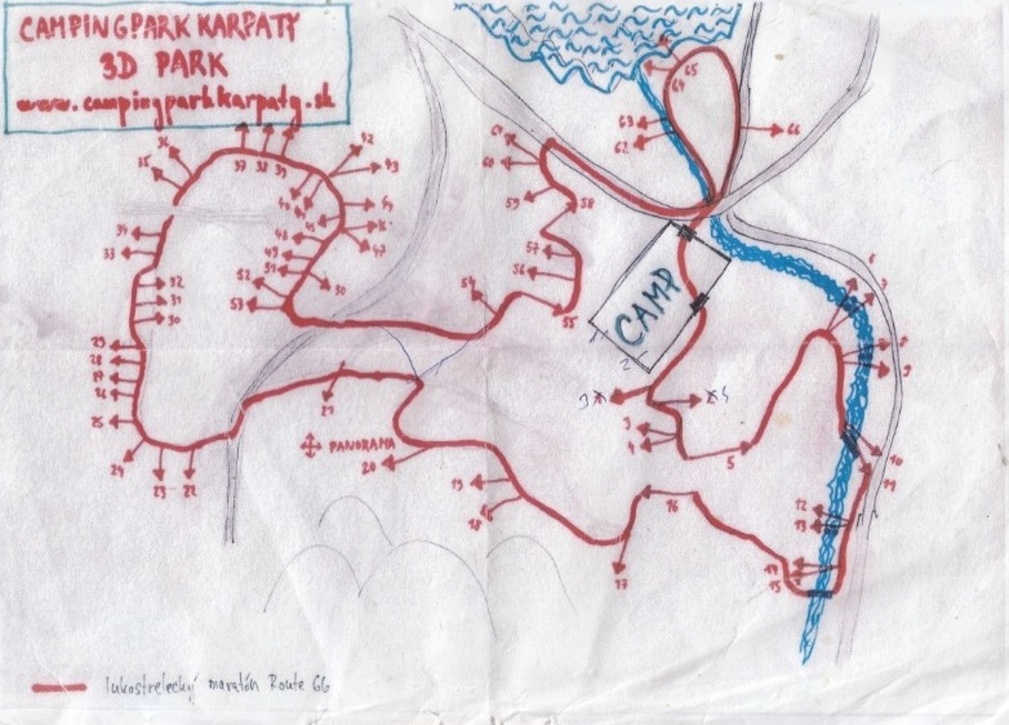 CAMPINGPARK KARPATY
3D PARK
www.campingparkkarpaty.sk
36
35
37
38
39
42
43
34
33
32
31
30
29
28
27
26
25
24
23
22
47
48
49
50
51
52
53
54
55
56
57
58
59
60
61
62
63
64
65
66
CAMP
1
2
3
3
4
5
6
7
8
9
10
11
12
13
14
15
16
17
18
19
20
21
PANORAMA
lukostrelecký maratón Route 66